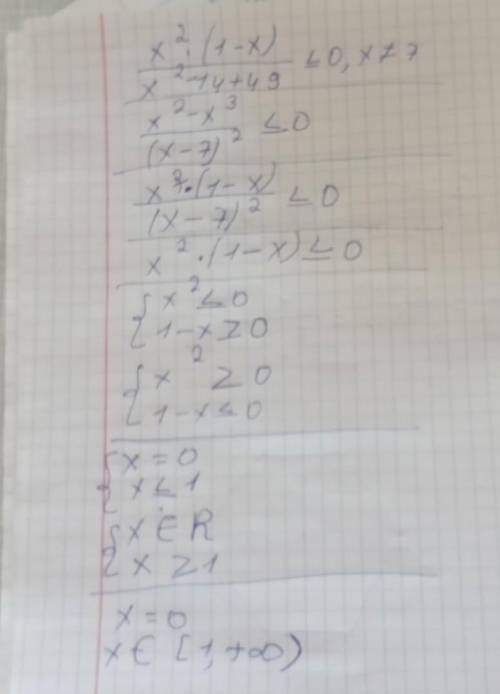 x²·(1-x)
/ x²-14+49 ≤0, x≠7
x²-x³
/ (x-7)² ≤0
x²·(1-x)
/ (x-7)² ≤0
x²·(1-x)≤0
{x²≤0
{1-x≥0
{x²≥0
{1-x≤0
{x=0
{x≤1
{x∈R
{x≥1
x=0
x∈[1,+∞)